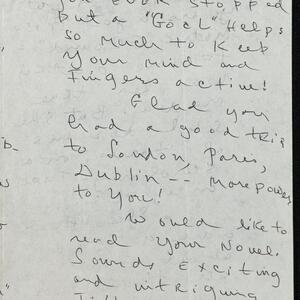 you ever stopped
but a "Goal" Helps
so much to keep
your mind and
fingers active!
Glad you
had a good trip
to London, Paris,
Dublin -- more power
to you!
Would like to
read your novel.
Sounds exciting
and intriguing